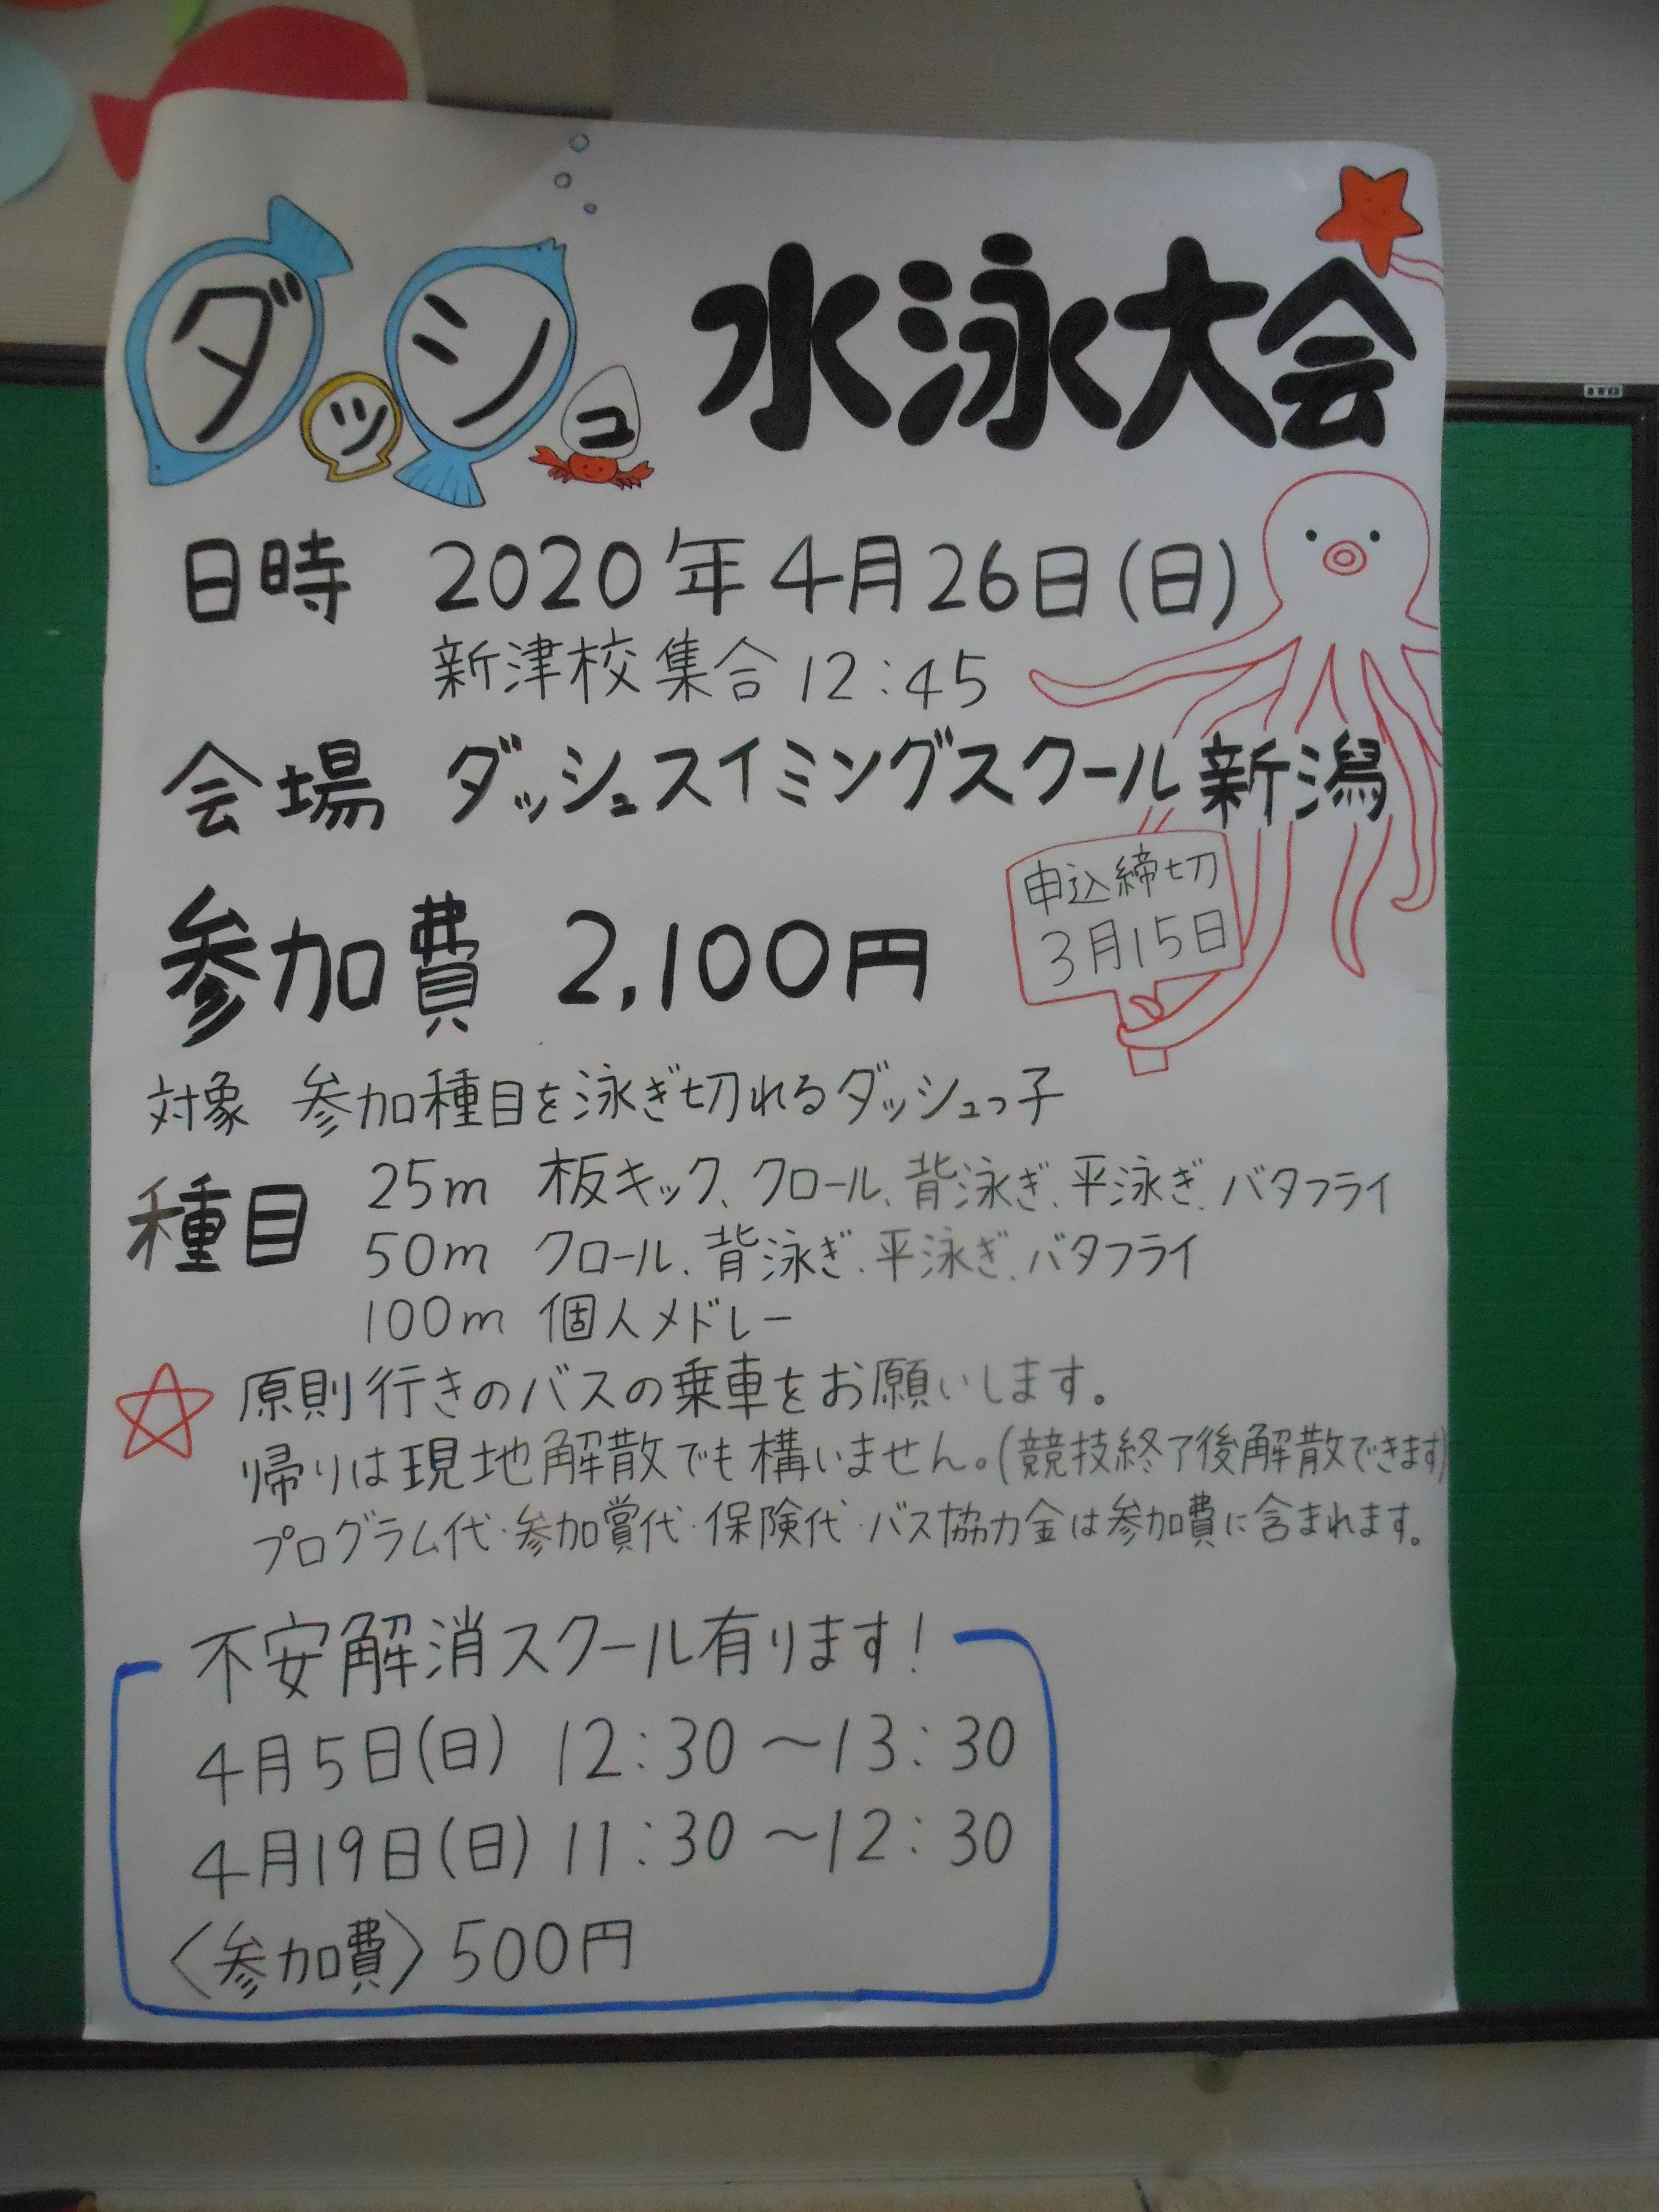 ダッシュ 水泳大会
日時 2020年4月26日(日)
新津校集合12:45
会場 ダッシュスイミングスクール新潟
申込締切
3月15日
参加費 2,100円
対象 参加種目を泳ぎ切れるダッシュっ子
種目 25m 板キック、クロール、背泳ぎ、平泳ぎ、バタフライ
50m クロール、背泳ぎ、平泳ぎ、バタフライ
100m 個人メドレー
☆原則行きのバスの乗車をお願いします。
帰りは現地解散でも構いません。(競技終了後解散できます)
プログラム代・参加賞代・保険代・バス協力金は参加費に含まれます。
不安解消スクール有ります!
4月5日(日) 12:30〜13:30
4月19日(日) 11:30〜12:30
〈参加費〉500円